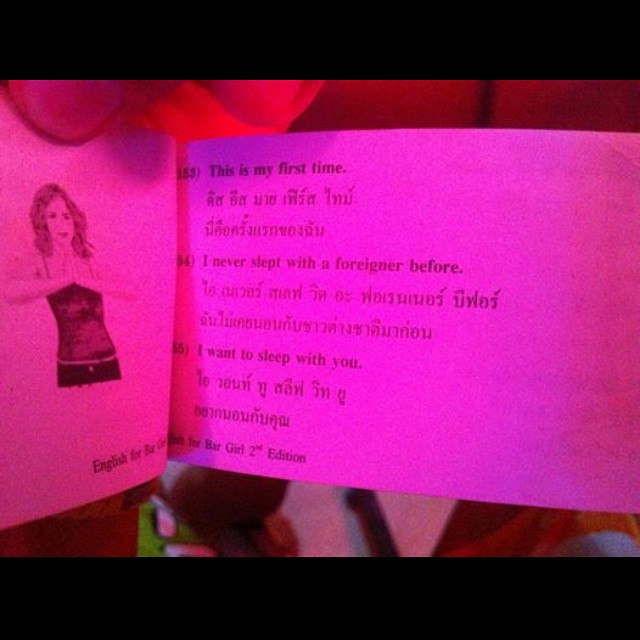 53) This is my first time.
ดิส อีส มาย เฟิร์ส ไทม์
นี่คือครั้งแรกของฉัน
54) I never slept with a foreigner before.
ไอ เนเวอร์ สเลฟ วิด อะ ฟอเรนเนอร์ บีฟอร์
ฉันไม่เคยนอนกับชาวต่างชาติมาก่อน
55) I want to sleep with you.
ไอ วอนท์ ทู สลีฟ วิท ยู
อยากนอนกับคุณ
English for Bar
for Bar Girl 2nd Edition